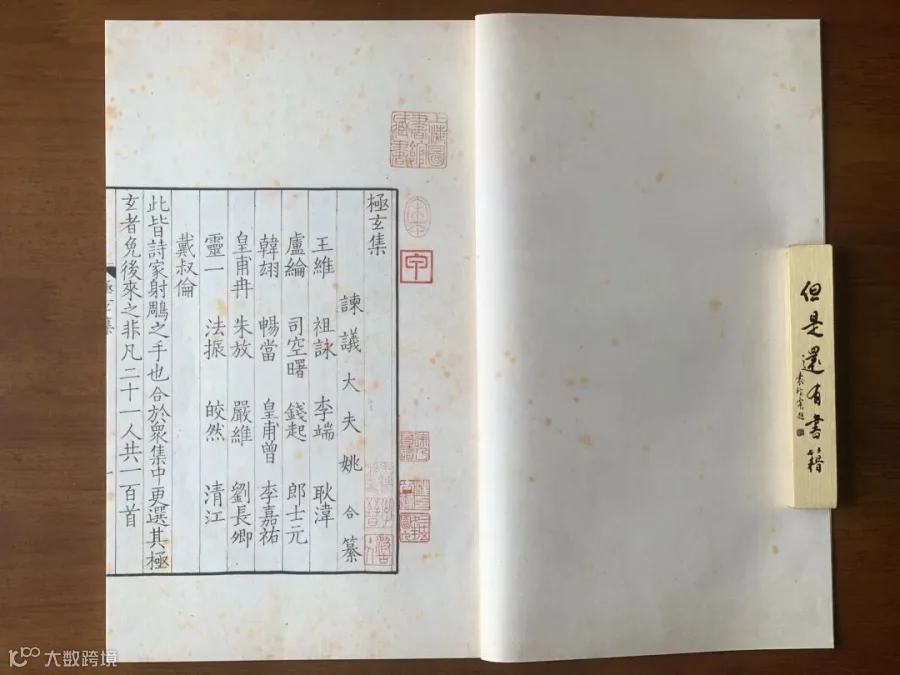 極玄集
諫議大夫姚合纂
王維 祖詠 李端 耿湋
盧綸 司空曙 錢起 郎士元
韓翃 暢當 皇甫曾 李嘉祐
皇甫冉 朱放 嚴維 劉長卿
靈一 法振 皎然 清江
戴叔倫
此皆詩家射雕之手也合於衆集中更選其極
玄者免後來之非凡二十一人共一百首
極玄集
一
上海圖書館藏書
但是還有書籍
大数跨境